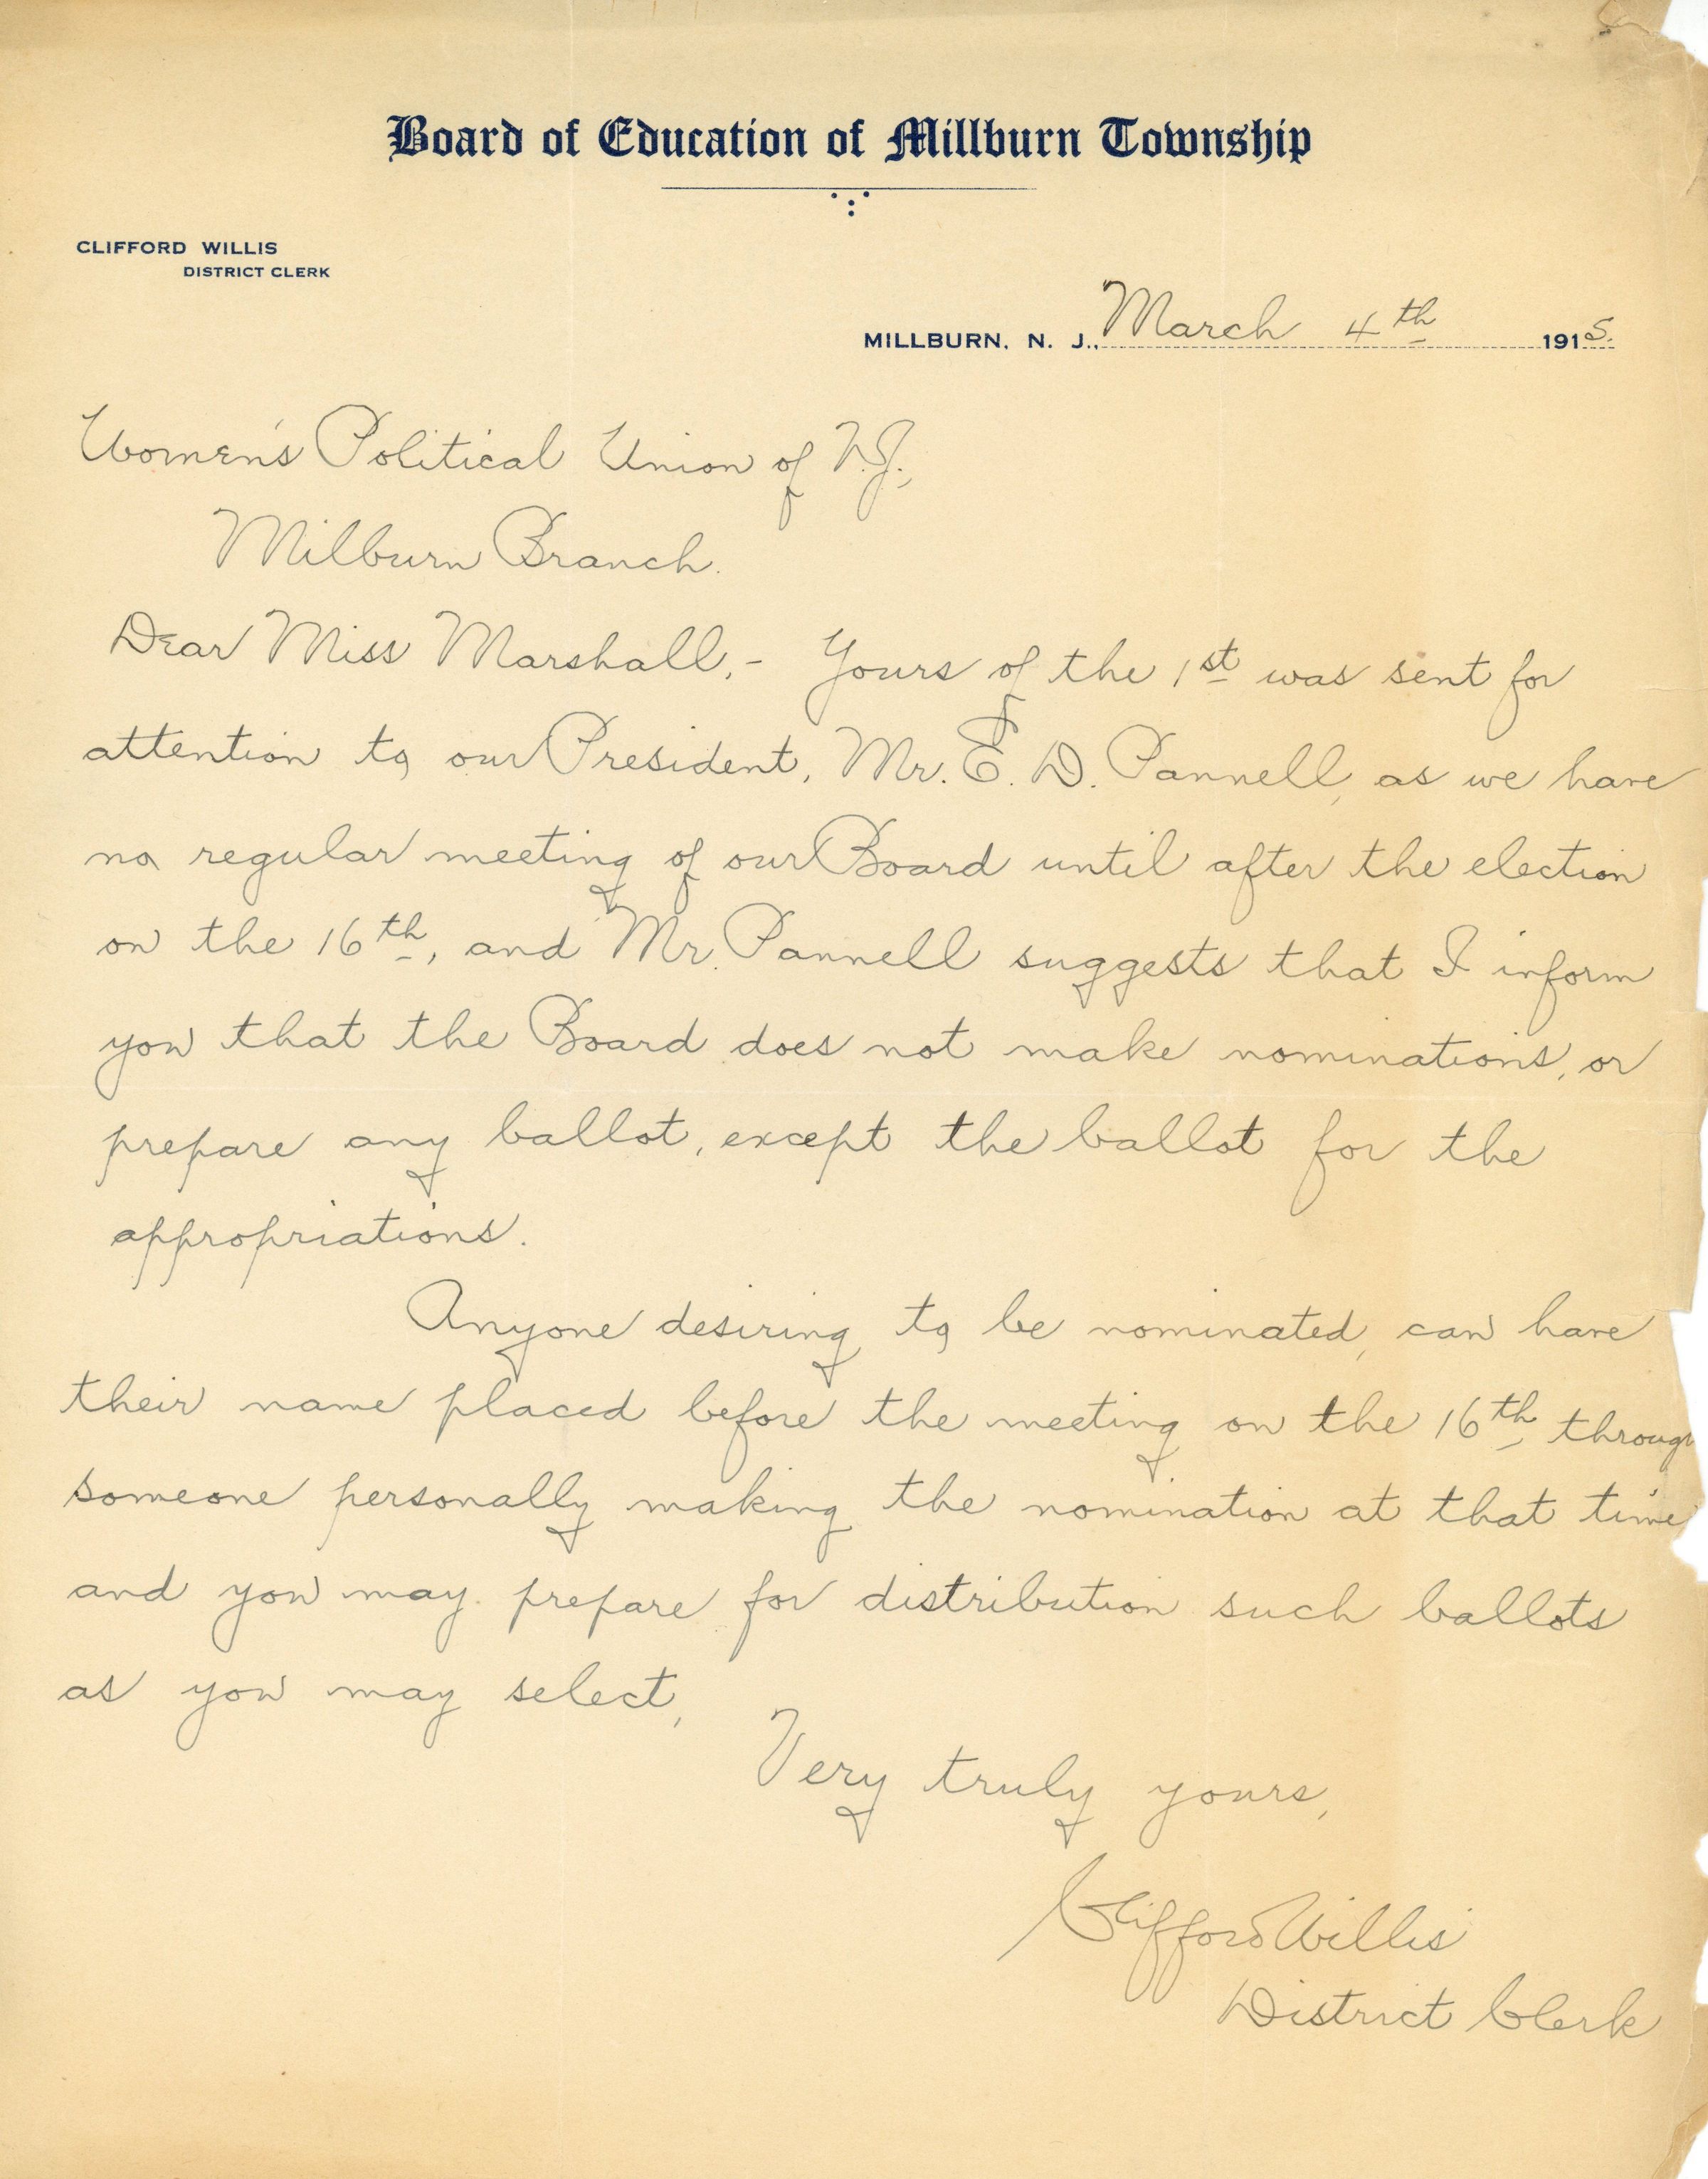 Board of Education of Millburn Township
CLIFFORD WILLIS
DISTRICT CLERK
MILLBURN, N. J., March 4th 1915.
Women's Political Union of N.J.,
Milburn Branch.
Dear Miss Marshall,- Yours of the 1st was sent for
attention to our President, Mr. E. D. Pannell, as we have
no regular meeting of our Board until after the election
on the 16th, and Mr. Pannell suggests that I inform
you that the Board does not make nominations, or
prepare any ballot, except the ballot for the
appropriations.
Anyone desiring to be nominated, can have
their name placed before the meeting on the 16th through
someone personally making the nomination at that time
and you may prepare for distribution such ballots
as you may select,
Very truly yours,
Clifford Willis
District Clerk